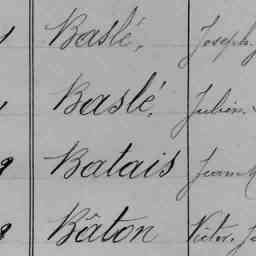 Baslé, Joseph
Baslé, Julien
9 Batais Jean M
8 Bâton Victor, J